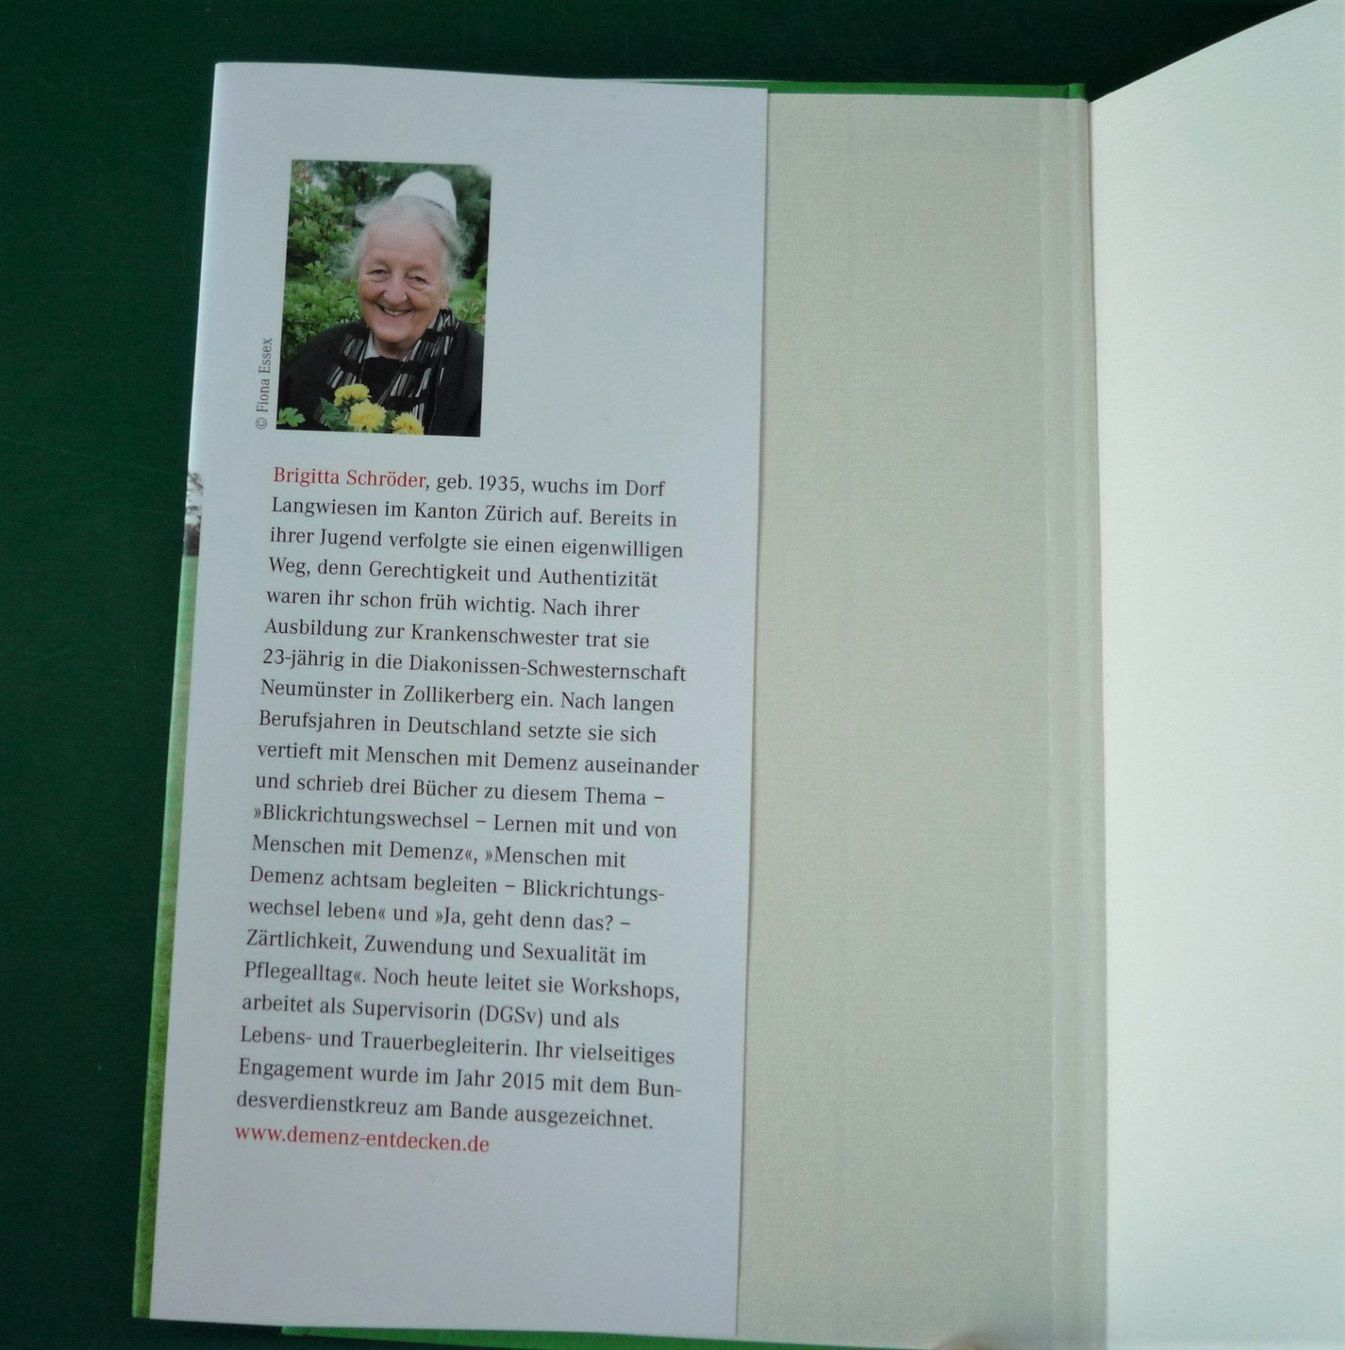 © Fiona Essex
Brigitta Schröder, geb. 1935, wuchs im Dorf
Langwiesen im Kanton Zürich auf. Bereits in
ihrer Jugend verfolgte sie einen eigenwilligen
Weg, denn Gerechtigkeit und Authentizität
waren ihr schon früh wichtig. Nach ihrer
Ausbildung zur Krankenschwester trat sie
23-jährig in die Diakonissen-Schwesternschaft
Neumünster in Zollikerberg ein. Nach langen
Berufsjahren in Deutschland setzte sie sich
vertieft mit Menschen mit Demenz auseinander
und schrieb drei Bücher zu diesem Thema –
»Blickrichtungswechsel – Lernen mit und von
Menschen mit Demenz«, »Menschen mit
Demenz achtsam begleiten – Blickrichtungs-
wechsel leben« und »Ja, geht denn das? –
Zärtlichkeit, Zuwendung und Sexualität im
Pflegealltag«. Noch heute leitet sie Workshops,
arbeitet als Supervisorin (DGSv) und als
Lebens- und Trauerbegleiterin. Ihr vielseitiges
Engagement wurde im Jahr 2015 mit dem Bun-
desverdienstkreuz am Bande ausgezeichnet.
www.demenz-entdecken.de